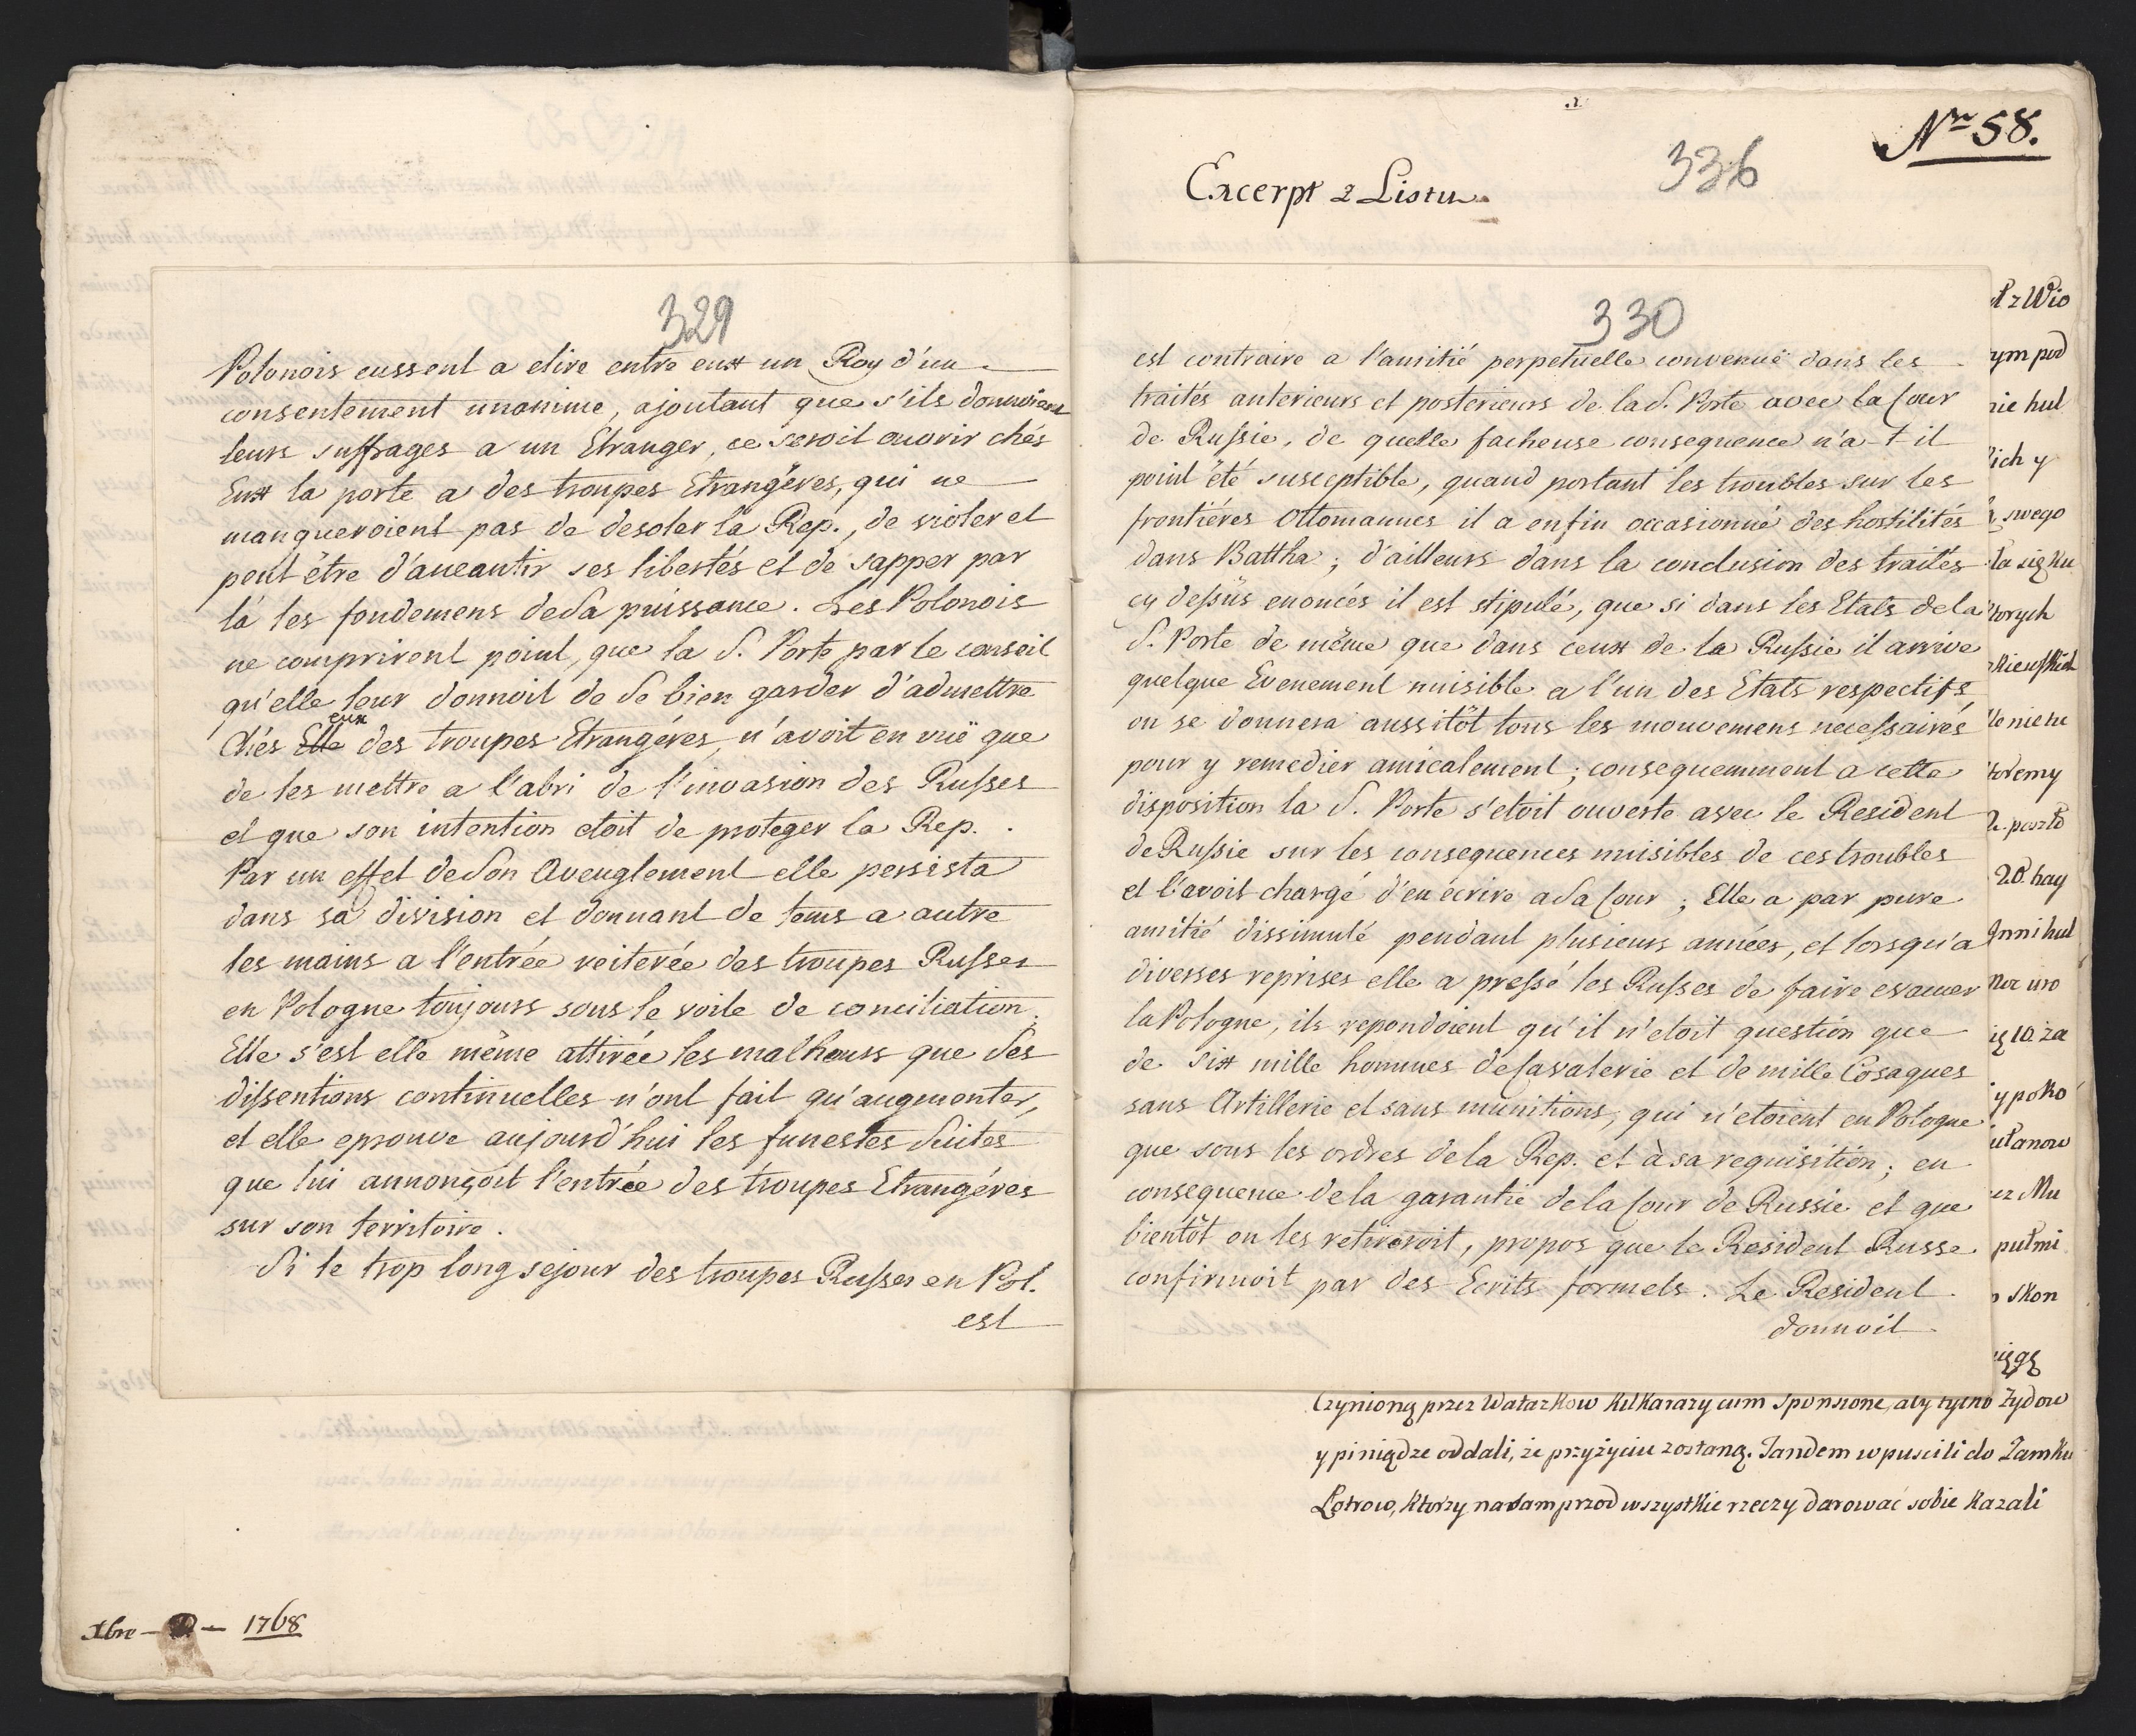 329
Polonois eussent a elire entre eux un Roy d'un
consentement unanime, ajoutant que s'ils donnoient
leurs suffrages a un Etranger, ce seroit ouvrir chés
Eux la porte a des troupes Etrangéres, qui ne
manqueroient pas de desoler la Rep., de violer et
peut être d'aneantir ses libertés et de sapper par
là les fondemens de Sa puissance. Les Polonois
ne comprirent point, que la S. Porte par le conseil
qu'elle leur donnoit de Se bien garder d'admettre
Chés Elle eux des troupes Etrangéres, n'avoit en vuë que
de les mettre a l'abri de l'invasion des Russes
et que son intention etoit de proteger la Rep. .
Par un effet de Son Aveuglement elle persista
dans sa division et donnant de tems a autre
les mains a l'entrée reiterée des troupes Russes
en Pologne toujours sous le voile de conciliation.
Elle s'est elle même attirée les malheurs que Ses
dissentions continuelles n'ont fait qu'augmenter,
et elle eprouve aujourd'hui les funestes Suites
que lui annonçoit l'entrée des troupes Etrangéres
sur son territoire.
Si le trop long sejour des troupes Russes en Pol.
est
Xbre — — 1768
Nro 58.
336
Excerpt z Listu
330
est contraire a l'amitié perpetuelle convenuë dans les
traités anterieurs et posterieurs de la S. Porte avec la Cour
de Russie, de quelle facheuse consequence n'a-t il
point été susceptible, quand portant les troubles sur les
frontiéres Ottomannes il a enfin occasionné des hostilités
dans Battha; d'ailleurs dans la conclusion des traités
cy dessus enoncés il est stipulé, que si dans les Etats de la
S. Porte de même que dans ceux de la Russie il arrive
quelque Evenement nuisible a l'un des Etats respectifs
on se donnera aussitôt tous les mouvemens necessaires
pour y remedier amicalement; consequemment a cette
disposition la S. Porte s'etoit ouverte avec le Resident
de Russie sur les consequences nuisibles de ces troubles
et l'avoit chargé d'en écrire a Sa Cour; Elle a par pure
amitié dissimulé pendant plusieurs années, et lorsqu'a
diverses reprises elle a pressé les Russes de faire evacuer
la Pologne, ils repondoient qu'il n'etoit question que
de Six mille hommes de Cavalerie et de mille Cosaques
sans Artillerie et sans munitions, qui n'etoient en Pologne
que sous les ordres de la Rep. et à sa requisition; en
consequence de la garantie de la Cour de Russie et que
bientôt on les retireroit, propos que le Resident Russe
confirmoit par des Ecrits formels. Le Resident
donnoit
czynioną przez Watazkow kilka razy cum Sponsione, aby tylko Zydow
y piniądze oddali, że przyżyciu zostaną. Tandem wpuscili do Zamku
Łotrow, ktorzy nasamprzod wszystkie rzeczy darować sobie kazali